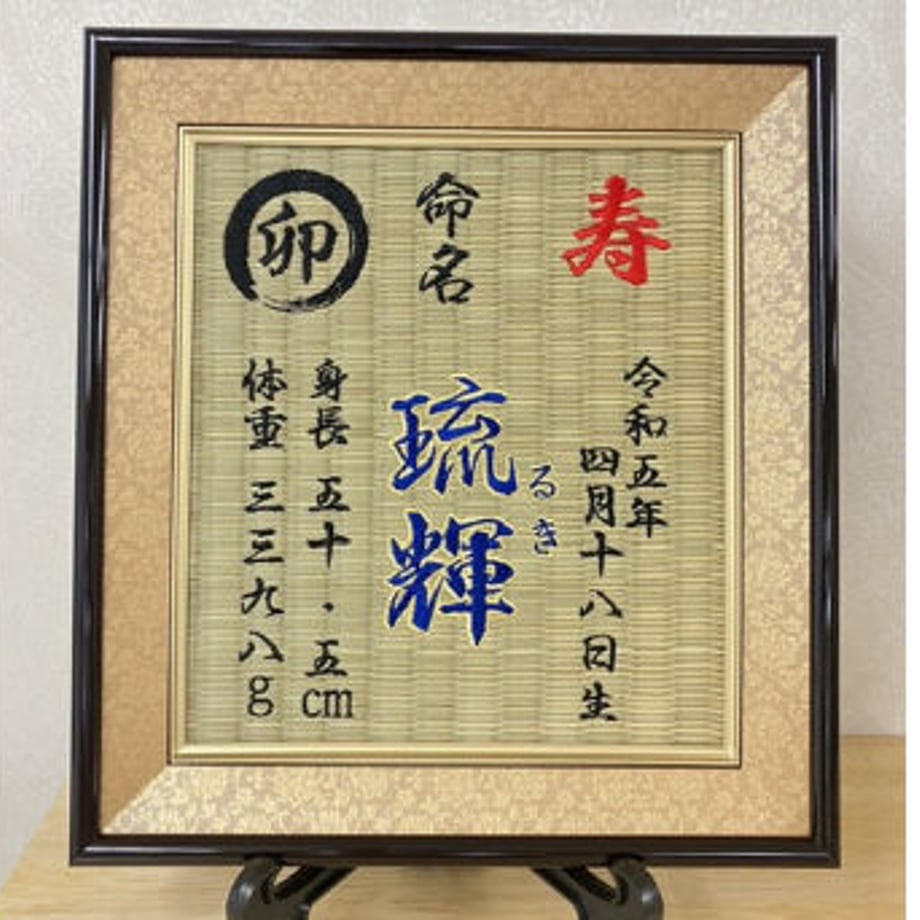 寿
令和五年
四月十八日生
命名
琉輝
るき
卯
身長 五十・五cm
体重 三三九八g